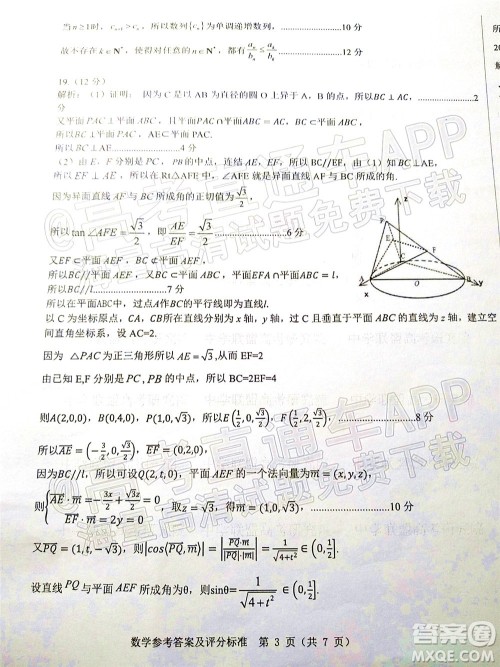 当n≥1时，cₙ₊₁>cₙ，所以数列{cₙ}为单调递增数列，………………10分
故不存在k∈N*，使得对任意的n∈N*，都有aₙ/bₙ≤aₖ/bₖ………………12分
19.（12分）
解析：（1）证明：因为C是以AB为直径的圆O上异于A，B的点，所以BC⊥AC，………………2分
又平面PAC⊥平面ABC，且平面PAC∩平面ABC=AC，BC⊂平面ABC，
所以BC⊥平面PAC，AE⊂平面PAC
所以BC⊥AE………………4分
（2）由E，F分别是PC，PB的中点，连结AE，EF，所以BC//EF，由（1）知BC⊥AE，
所以EF⊥AE，所以，在Rt△AFE中，∠AFE就是异面直线AF与BC所成的角.
因为异面直线AF与BC所成角的正切值为√3/2，
所以tan∠AFE=√3/2，即AE/EF=√3/2………………5分
又EF⊂平面AEF，BC⊄平面AEF，
所以BC//平面AEF，又BC⊂平面ABC，平面EFA∩平面ABC=l，
所以BC//l………………7分
所以在平面ABC中，过点A作BC的平行线即为直线l.
以C为坐标原点，CA，CB所在直线分别为x轴，y轴，过C且垂直于平面ABC的直线为z轴，建立空
间直角坐标系，设AC=2.
z
P
E
F
C
A
O
B
x
y
因为△PAC为正三角形所以AE=√3,从而EF=2
由已知E,F分别是PC,PB的中点，所以BC=2EF=4
则A(2,0,0)，B(0,4,0)，P(1,0,√3)，所以E(1/2,0,√3/2)，F(1/2,2,√3/2)，………………8分
所以AE=(-3/2,0,√3/2)，EF=(0,2,0)，
因为BC//l，所以可设Q(2,t,0)，平面AEF的一个法向量为m=(x,y,z)，
则{AE·m=-3x/2+√3z/2=0 EF·m=2y=0，取z=√3，得m=(1,0,√3)，………………10分
又PQ=(1,t,-√3)，则|cos⟨PQ,m⟩|=|PQ·m/|PQ||m||=1/√(4+t²)∈(0,1/2].
设直线PQ与平面AEF所成角为θ，则sinθ=1/√(4+t²)∈(0,1/2].
数学参考答案及评分标准 第 3 页（共 7 页）
答案圈
MXQE.COM